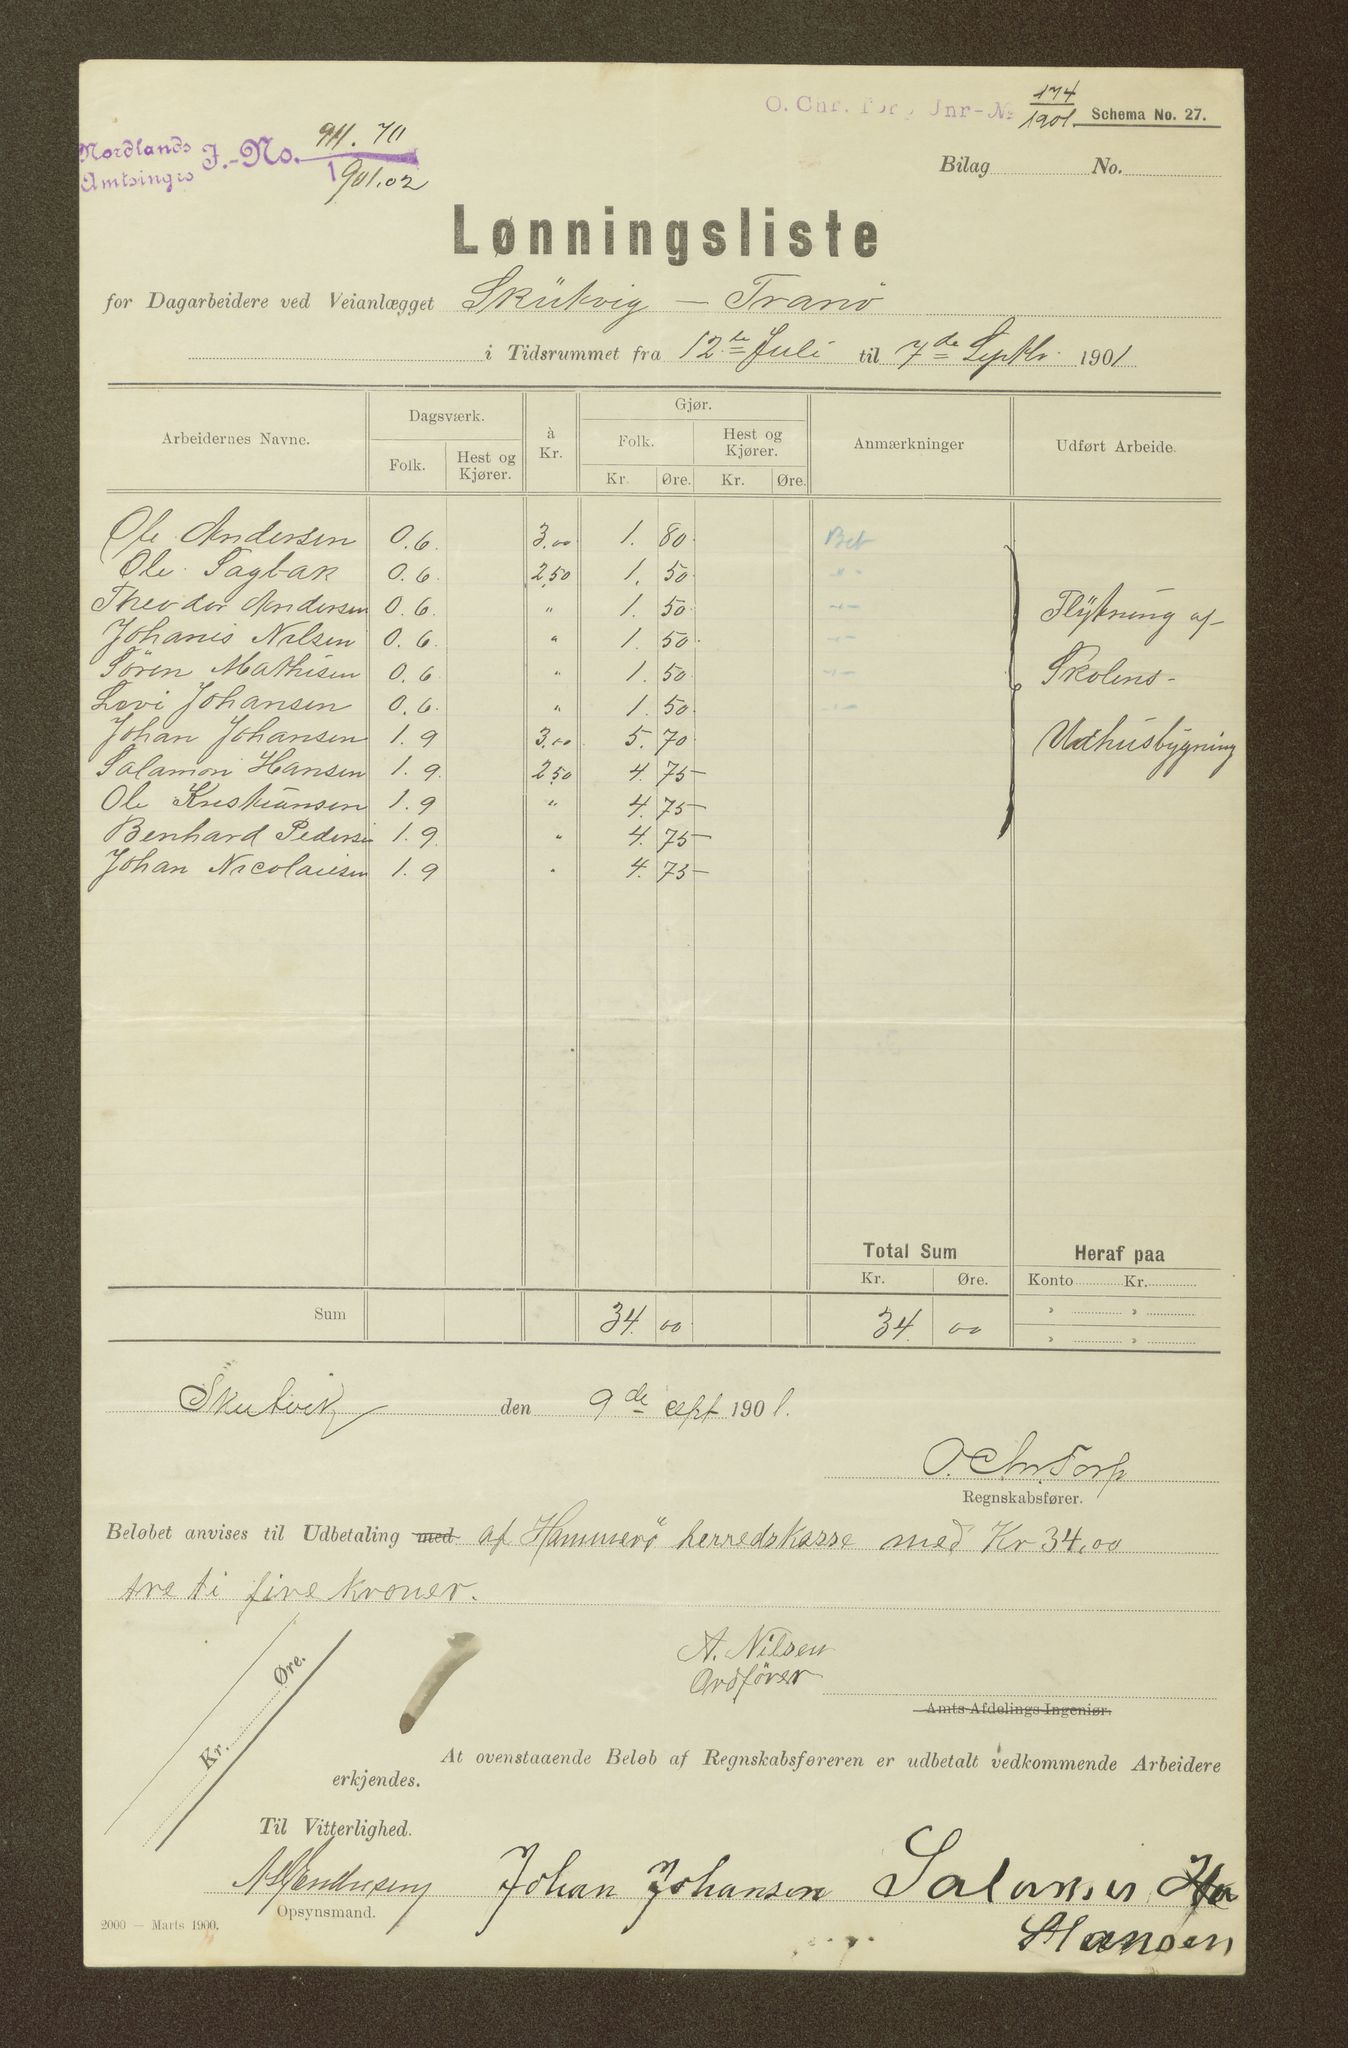 O. Chr. Torp Jnr-No 174
1901 Schema No. 27.
Nordlands J.-No. 911. 70
Amtsingrs 1901.02
Bilag No.
Lønningsliste
for Dagarbeidere ved Veianlægget Skütvig — Tranö
i Tidsrummet fra 12te Juli til 7de Septbr. 1901
Arbeidernes Navne. Dagsværk. à Kr. Gjør. Anmærkninger Udført Arbeide.
Folk. Hest og Kjører. Folk. Hest og Kjører.
Kr. Øre. Kr. Øre.
Ole Andersen 0.6. 3.00 1. 80. Bet
Ole Sagbak 0.6. 2.50 1. 50. -"-
Theodor Andersen 0.6. " 1. 50. -"- Flytning af
Johanis Nilsen 0.6. " 1. 50. -"-
Sören Mathisen 0.6. " 1. 50. -"- Skolens
Levi Johansen 0.6. " 1. 50. -"-
Johan Johansen 1.9 3.00 5. 70. Udhusbygning
Salamon Hansen 1.9. 2.50 4. 75
Ole Kristiansen 1.9 " 4. 75
Benhard Pedersen 1.9. " 4. 75
Johan Nicolaiesen 1.9 " 4. 75
Total Sum Heraf paa
Kr. Øre. Konto Kr.
Sum 34. 00 34. 00 " "
" "
Skutvik den 9de sept 1901.
O. Chr Torp
Regnskabsfører.
Beløbet anvises til Udbetaling med af Hammerö herredskasse med Kr 34.00
tre ti fire kroner.
A. Nilsen
Ordförer
Amts-Afdelings Ingeniør.
Kr. Øre.
At ovenstaaende Beløb af Regnskabsføreren er udbetalt vedkommende Arbeidere
erkjendes.
Til Vitterlighed.
Johan Johansen Salamon Ha
Hansen
Opsynsmand.
2000 — Marts 1900.